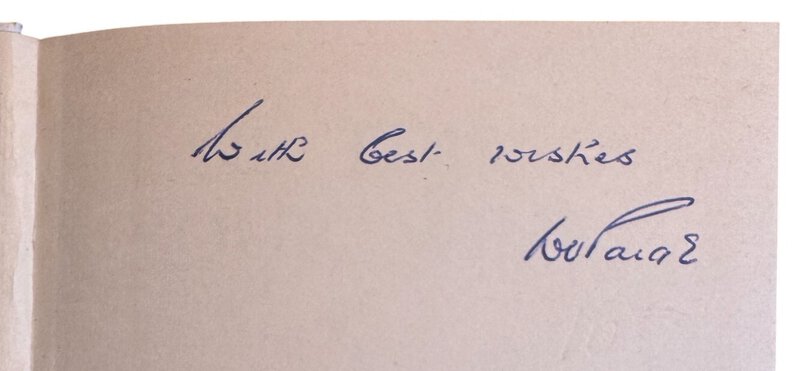 With best wishes